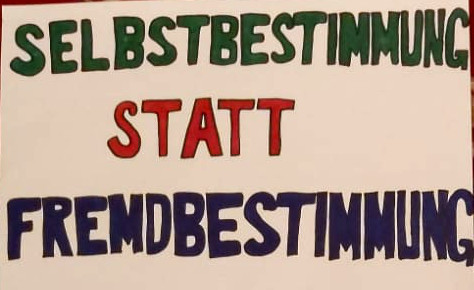 SELBSTBESTIMMUNG
STATT
FREMDBESTIMMUNG